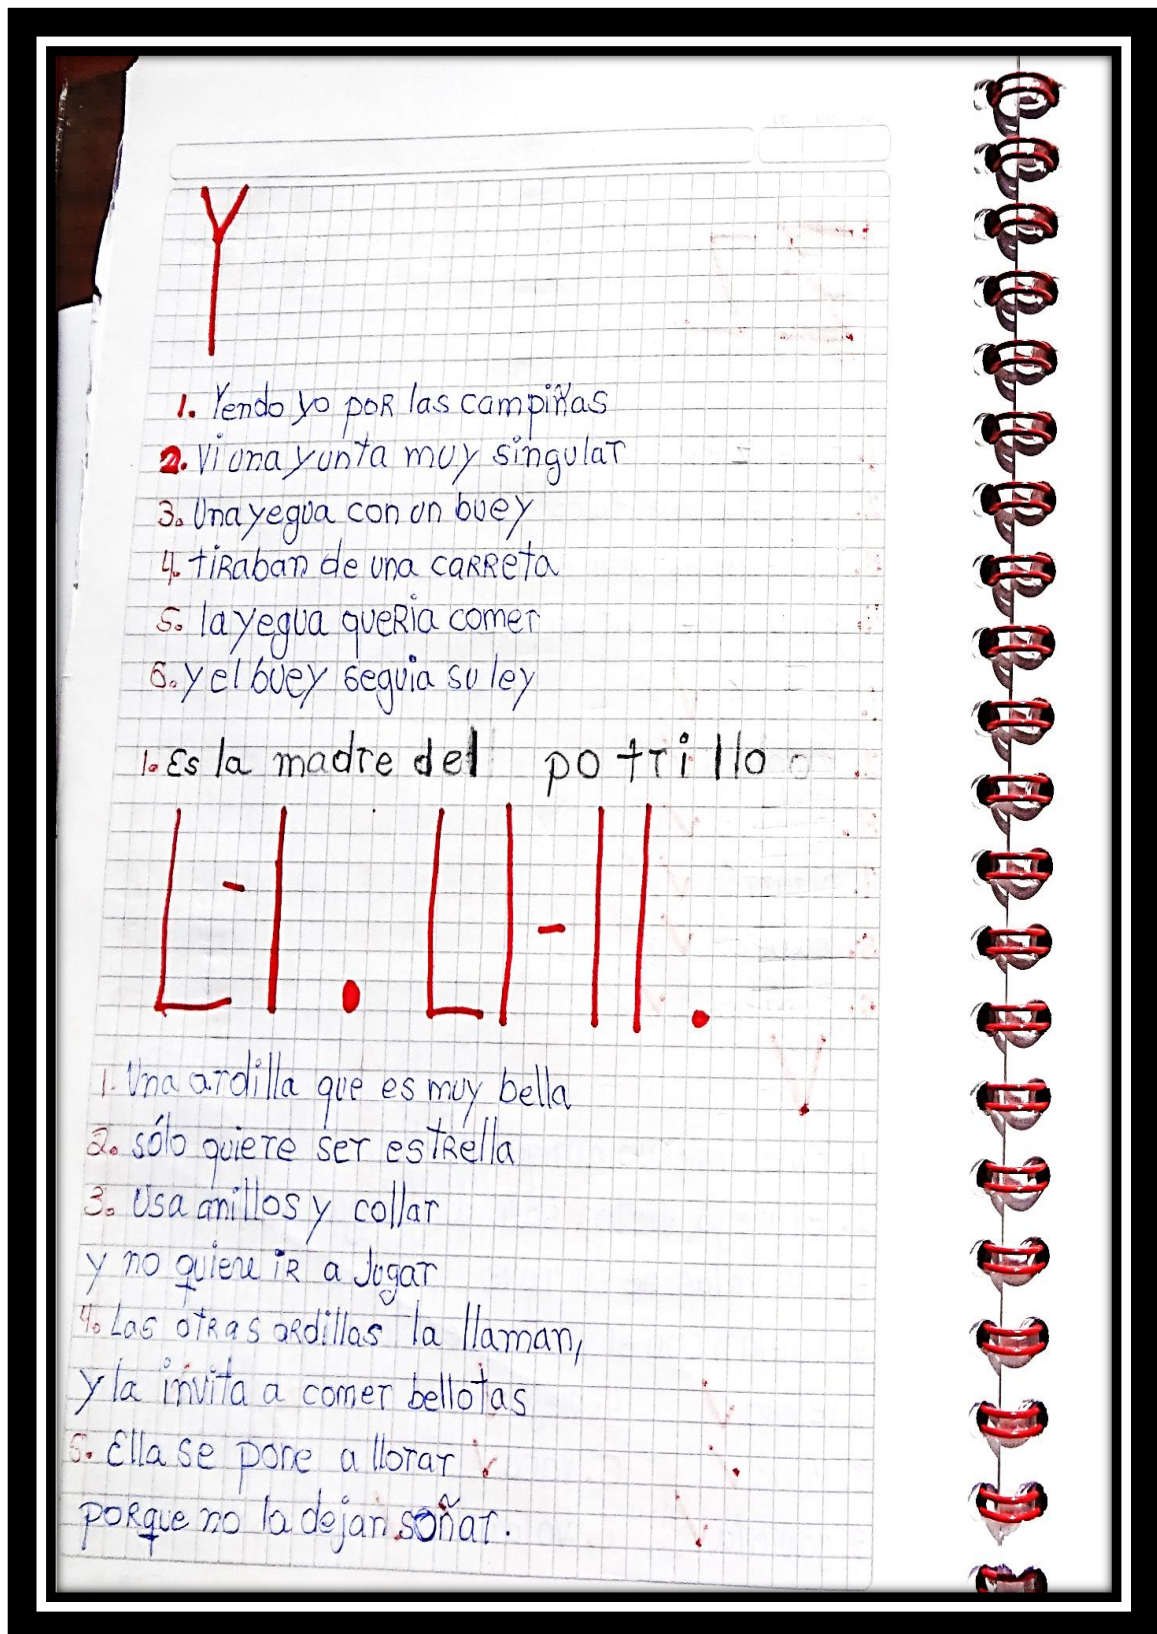 Y
1. Yendo yo por las campiñas
2. Vi una yunta muy singular
3. Una yegua con un buey
4. tiraban de una carreta
5. la yegua queria comer
6. y el buey seguia su ley
1. Es la madre del potrillo
L-l. Ll-ll.
1. Una ardilla que es muy bella
2. sólo quiere ser estrella
3. Usa anillos y collar
y no quiere ir a Jugar
4. Las otras ardillas la llaman,
y la invita a comer bellotas
5. Ella se pone a llorar
porque no la dejan soñar.